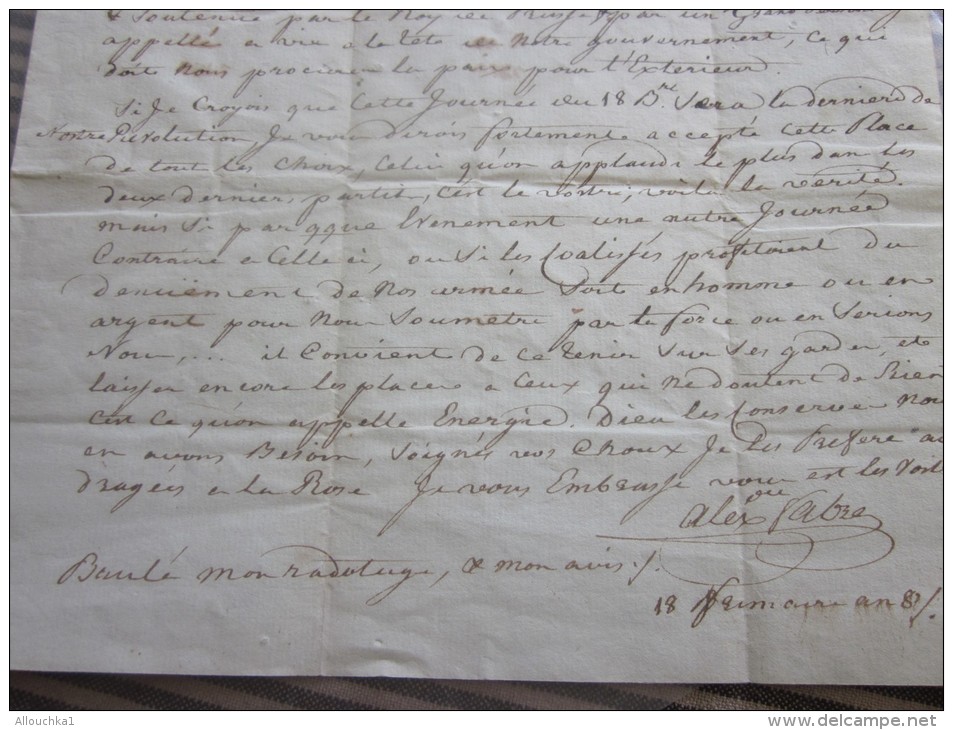 & Soutenu par le Roy de Prusse, & par un Grand
appellé a vive a la tete de Notre gouvernement, ce qui
doit Nous procurer la paix pour l'Exterieur.
Si Je Croyois que Cette Journée du 18 Bre. sera la derniere de
Nostre Revolution Je vous dirois fortement accepté Cette Place
de tout les Choix, Celui qu'on applaudi le plus dan les
deux dernier, partit, C'est le Vostre; voila la verité.
mais Si par qque Evenement une autre Journée
Contraire a Celle ci, ou Si les Coalissés profitoient du
denüement de Nos armée Soit en homme ou en
argent pour Nous Soumetre par la force ou en Serions
Nou,... il Convient de Ce tenir Sur Ses garder, et
laisser encore les places a Ceux qui Ne doutent de Rien
C'est Ce qu'on appelle Energie. Dieu les Conserve Nou
en avons Besoin, Soignés vos Choux Je les Prefere au
dragées a la Rose Je vous Embrasse
alexdre Fabre
Brulé mon radotage, & mon avis ./.
18 frimaire an 8/.
Allouchka1
http://www.delcampe.net